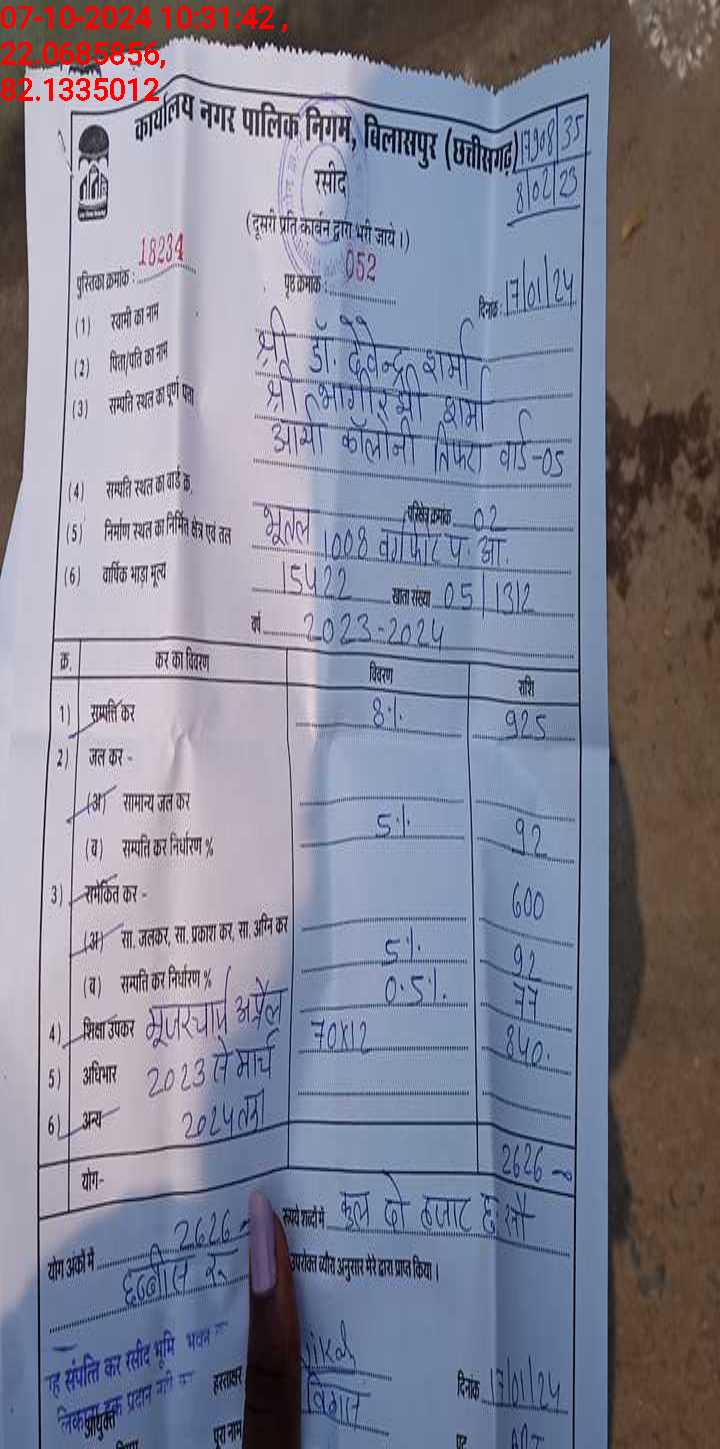 07-10-2024 10:31:42 ,
22.0685856,
82.1335012
कार्यालय नगर पालिक निगम, बिलासपुर (छत्तीसगढ़)
17908/35
8/02/23
रसीद
(दूसरी प्रति कार्बन द्वारा भरी जाये।)
पुस्तिका क्रमांक : 18234 पृष्ठ क्रमांक : 052 दिनांक : 17/01/24
(1) स्वामी का नाम श्री डॉ. देवेन्द्र शर्मा
(2) पिता/पति का नाम श्री भागीरथी शर्मा
(3) सम्पति स्थल का पूर्ण पता कॉलोनी तिफरा वार्ड-05
(4) सम्पति स्थल का वार्ड क्र. परिक्षेत्र क्रमांक 02
(5) निर्माण स्थल का निर्मित क्षेत्र एवं तल भूतल 1008 वर्गफीट प. आ.
(6) वार्षिक भाड़ा मूल्य 15422 खाता संख्या 05/1312
वर्ष 2023-2024
क्र. कर का विवरण विवरण राशि
1) सम्पत्ति कर 8% 925
2) जल कर -
(अ) सामान्य जल कर
(ब) सम्पति कर निर्धारण % 5% 92
3) समेकित कर - 600
(अ) सा. जलकर, सा. प्रकाश कर, सा. अग्नि कर
(ब) सम्पति कर निर्धारण % 5% 92
4) शिक्षा उपकर 0.5% 77
यूजरचार्ज अप्रैल 70x12 840.
5) अधिभार 2023 से मार्च
6) अन्य 2024 तक
योग- 2626
योग अंकों में 2626 रूपये शब्दों में कुल दो हजार छः सौ
छब्बीस रू. उपरोक्त ब्यौरा अनुसार मेरे द्वारा प्राप्त किया।
यह संपत्ति कर रसीद भूमि भवन
हक प्रदान नहीं
आयुक्त
हस्ताक्षर
दिनांक 17/01/24
पूरा नाम
पद